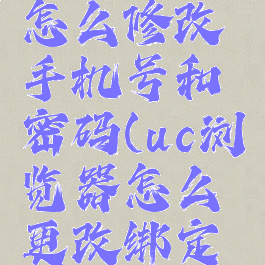 怎么修改
手机号和
密码(uc浏
览器怎么
更改绑定